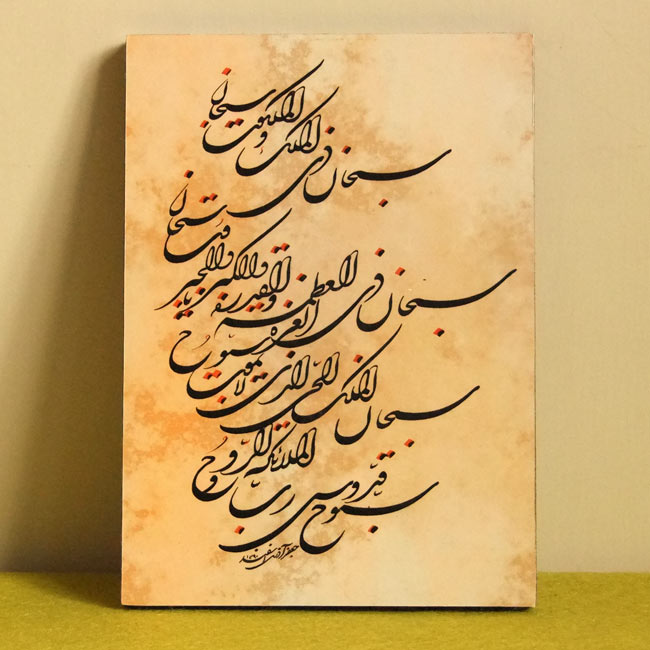 سبحان ذی الملک و الملکوت سبحان
سبحان ذی العزه العظمة و القدرة و الکبریا و الجبروت سبحان
سبحان الملک الحی الذی لا یموت سبوح
سبوح قدوس رب الملائکة و الروح